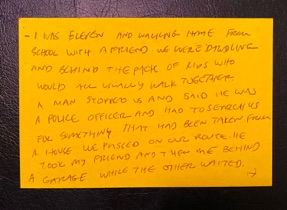 - I WAS ELEVEN AND WALKING HOME FROM
SCHOOL WITH A FRIEND WE WERE DAWDLING
AND BEHIND THE PACK OF KIDS WHO
WOULD ALL USUALLY WALK TOGETHER
A MAN STOPPED US AND SAID HE WAS
A POLICE OFFICER AND HAD TO SEARCH US
FOR SOMETHING THAT HAD BEEN TAKEN FROM
A HOUSE WE PASSED ON OUR ROUTE. HE
TOOK MY FRIEND AND THEN ME BEHIND
A GARAGE WHILE THE OTHER WAITED.
→